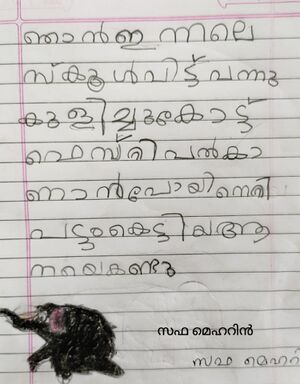 ഞാൻഇ ന്നലെ
സ്കൂൾവിട്ട് വന്നു
കുളിച്ചുകോട്ട്
ഫെസ്റ്റിവൽകാ
ണാൻപോയിനെറ്റി
പട്ടംകെട്ടിയആ
നയെകണ്ടു
സഫ മെഹറിൻ
സഫ മെഹറി